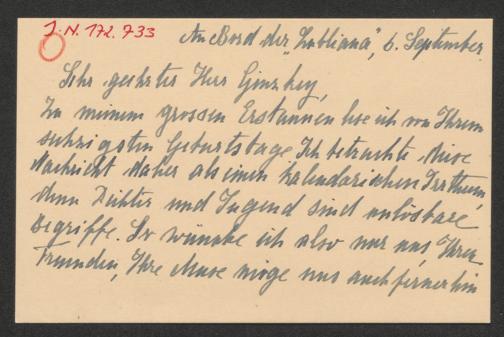 J. N. 172.733
An Bord der "Lubliana", 6. September
Sehr geehrter Herr Ginzkey,
Zu meinem grossen Erstaunen lese ich von Ihrem
sechzigsten Geburtstage. Ich betrachte diese
Nachricht daher als einen kalendarischen Irrthum
denn Dichter und Jugend sind unlösbare
Begriffe. So wünsche ich also nur uns, Ihren
Freunden, Ihre Muse möge uns auch fernerhin